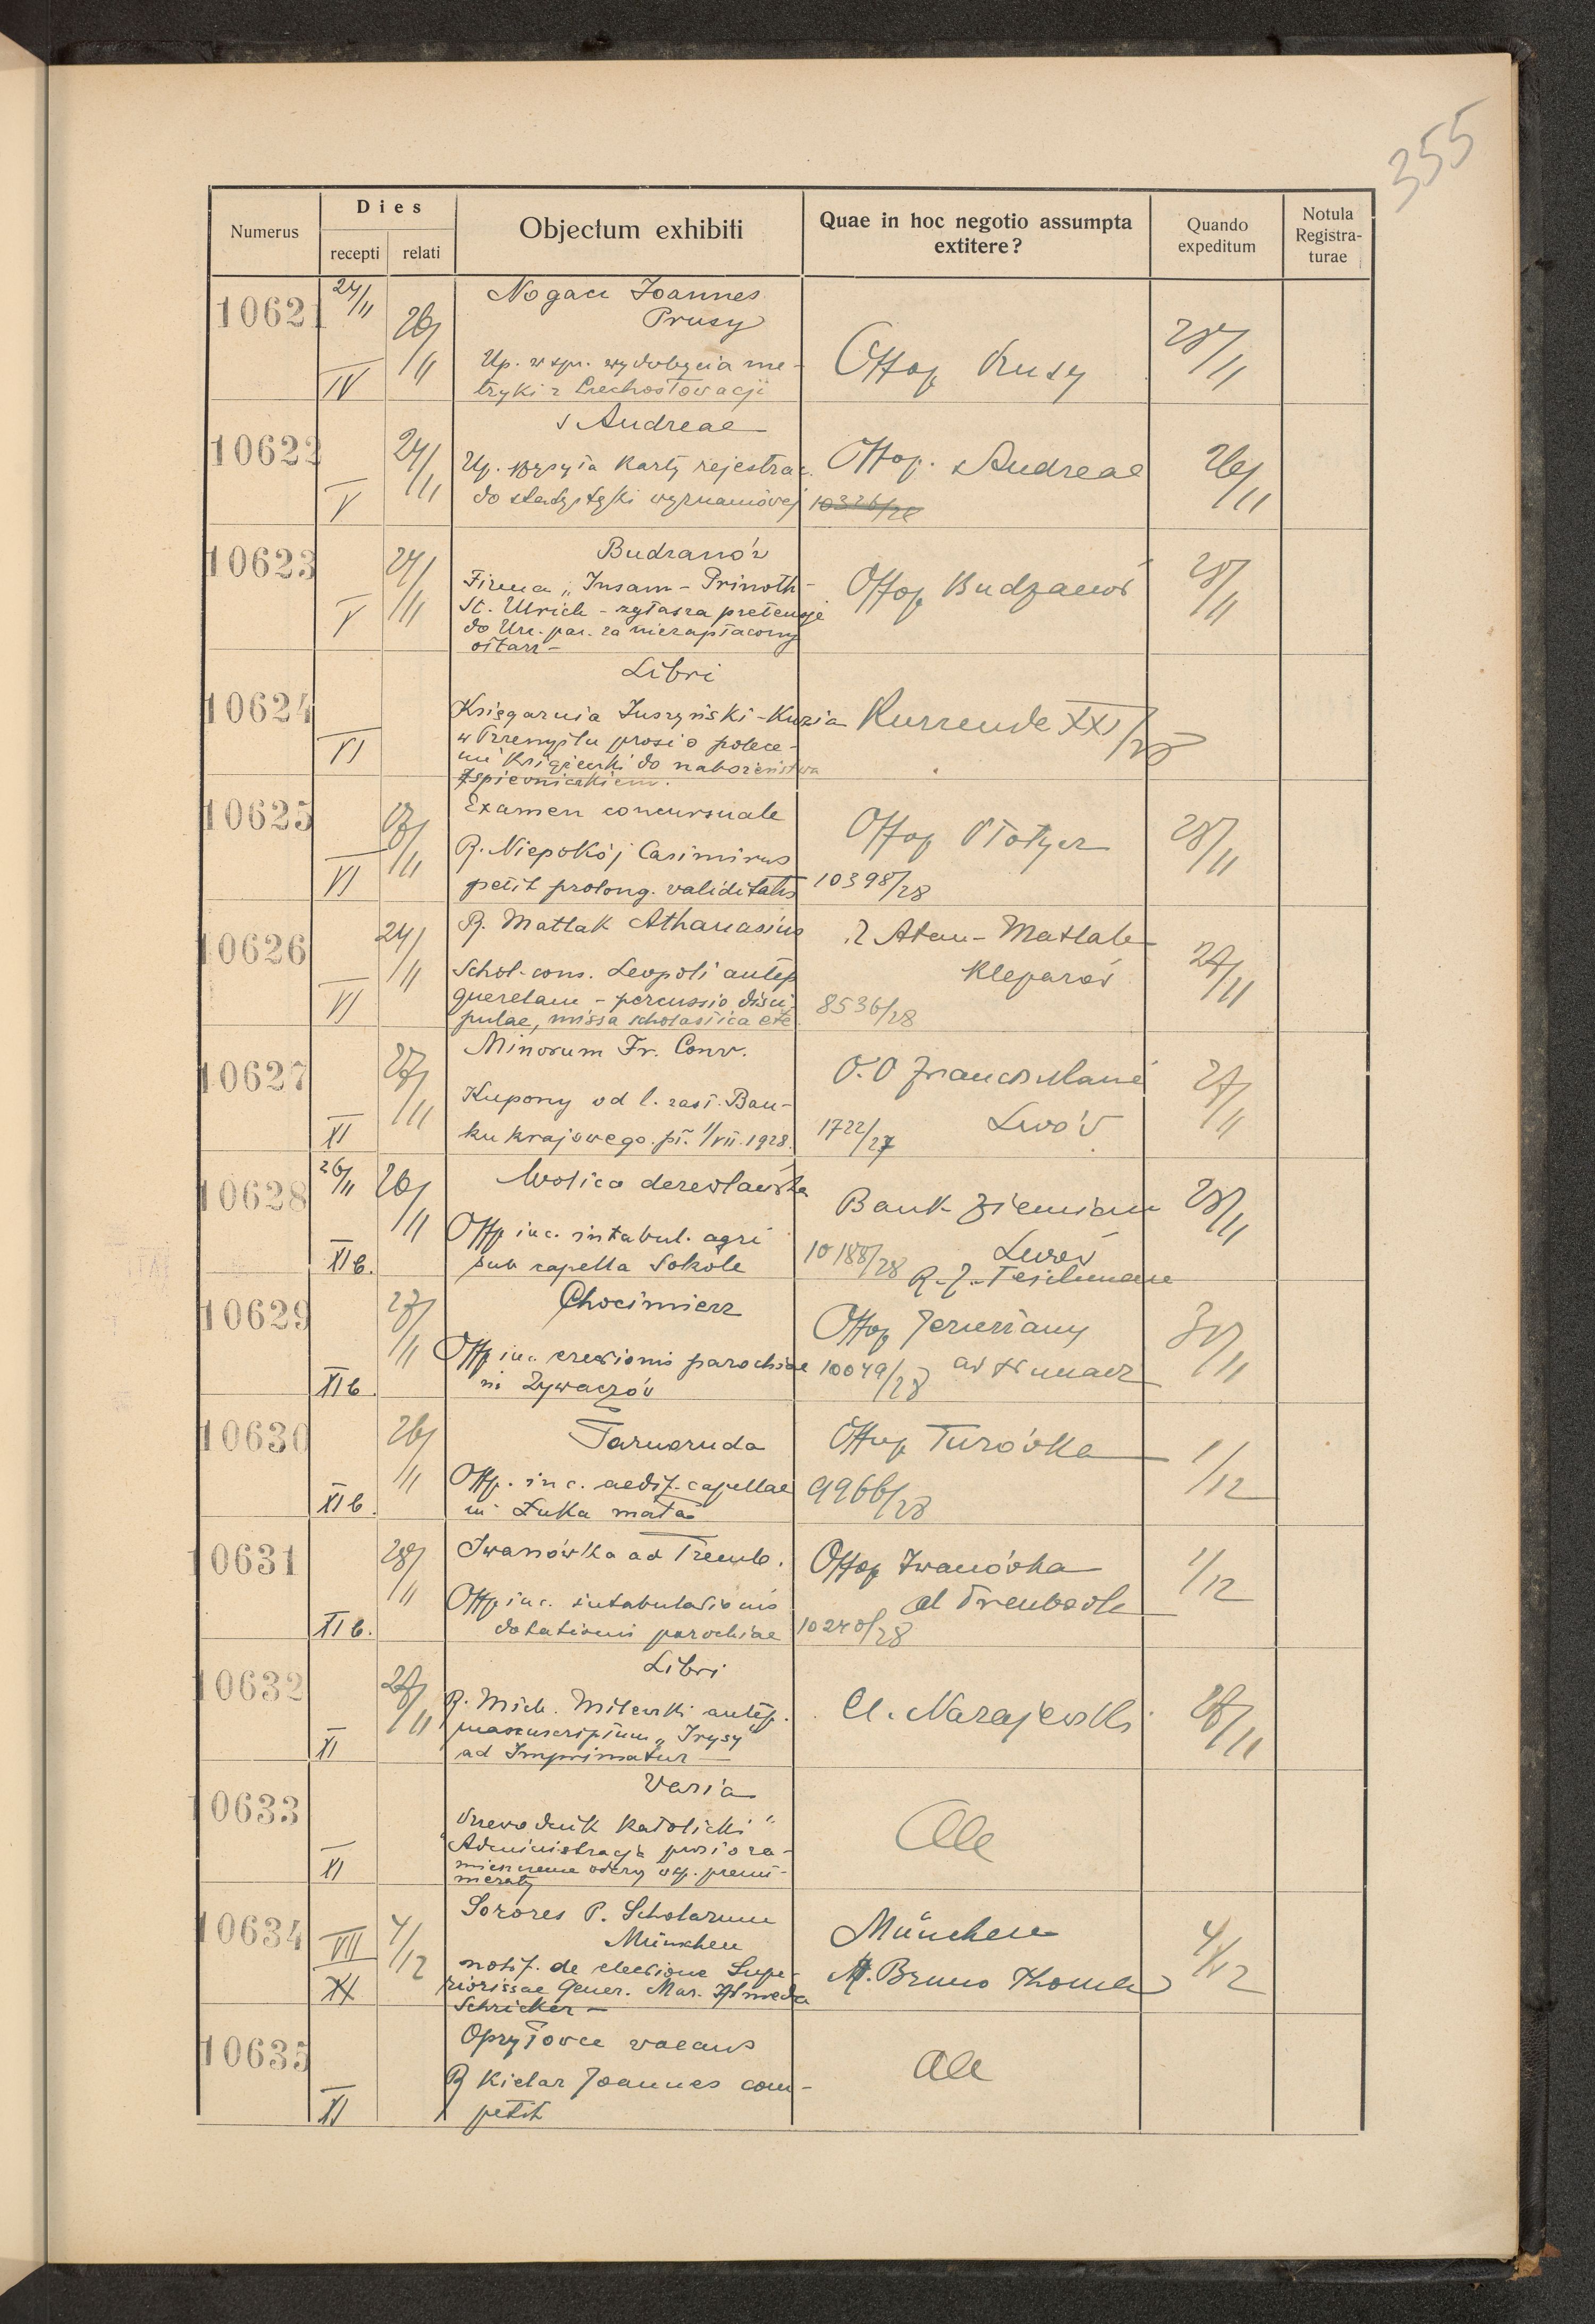 355
Numerus
Dies
recepti
relati
Objectum exhibiti
Quae in hoc negotio assumpta
extitere?
Quando
expeditum
Notula
Registra-
turae
10621
24/11
IV
26/11
Nogacz Joannes
Prusy
Up. w spr. wydobycia me-
tryki z Czechosłowacji
Offop Prusy
28/11
10622
V
24/11
s Andreae
Up. przysyła kartę rejestrac.
do statystyki wyznaniowej
Offop. s Andreae
10326/28
26/11
10623
V
24/11
Budzanów
Firma „Insam-Prinoth-
St. Ulrich - zgłasza pretensje
do Urz. par. za niezapłacony
ołtarz-
Offop Budzanów
28/11
10624
VI
Libri
Księgarnia Juszyński-Kuzia
w Przemyślu prosi o polece-
nie książeczki do nabożeństwa
z śpiewniczkiem.
Kurrenda XXI/28
10625
VI
27/11
Examen concursuale
R. Niepokój Casimirus
petit prolong. validitatis
Offop Płotycz
10398/28
28/11
10626
VI
24/11
R. Matlak Athanasius
Schol-cons. Leopoli antep
querelam - percussio disci-
pulae, missa scholastica etc
R Atan- Matlak
Kleparów
8536/28
27/11
10627
XI
27/11
Minorum Fr. Conv.
Kupony od l. zast. Ban-
ku krajowego. pł. 1/VII.1928.
O.O Franciszkanie
Lwów
1722/27
27/11
10628
26/11
XI b.
26/11
Wolica derewlańska
Offp inc. intabul. agri
sub capella Sokole
Bank Ziemian
Lwów
10188/28
R. J. Teichman
28/11
10629
XI b
27/11
Chocimierz
Offp inc. erectionis parochiae
in Żywaczów
Offop Jezierzany
10049/28 ad Tłumacz
30/11
10630
XI b.
26/11
Tarnoruda
Offp. inc. aedif. capellae
in Łuka mała
Offop Turówka
9966/28
1/12
10631
XI b.
28/11
Iwanówka ad Tremb.
Offp inc. intabulationis
dotationis parochiae
Offop Iwanówka
ad Trembowla
10240/28
1/12
10632
XI
27/11
Libri
R. Mich. Milewski antep.
manuscriptum „Irysy"
ad Imprimatur-
Cl. Narajewski
28/11
10633
XI
Varia
„Przewodnik Katolicki"
Administracja prosi o za-
mieszczenie odezwy wsp. prenu-
meraty
10634
VII
XI
4/12
Sorores P. Scholarum
München
notif. de electione Supe-
riorissae Gener. Mar. Almeda
Schricker-
München
M. Bruno Thoma
4/12
10635
XI
Opryłowce vacans
R Kielar Joannes com-
petit